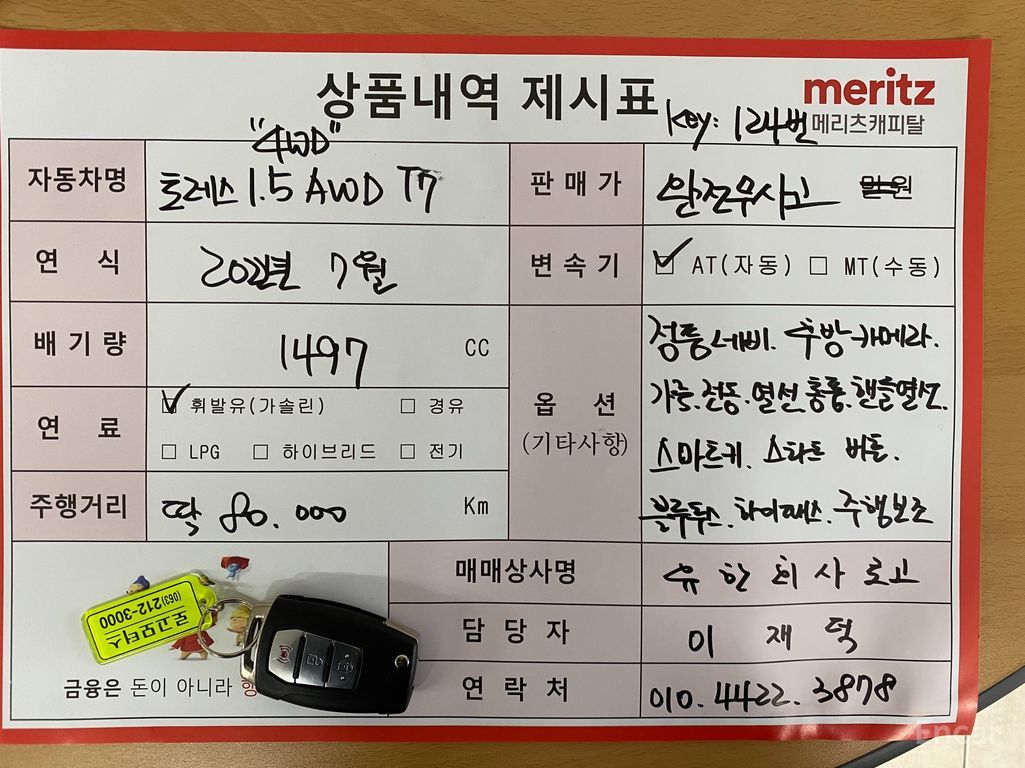 상품내역 제시표
meritz
메리츠캐피탈
Key: 124번
"4WD"
자동차명 토레스 1.5 AWD T7
판매가 완전무사고 만원
연 식 2022년 7월
변속기 ☑ AT(자동) □ MT(수동)
배기량 1497 CC
연 료 ☑ 휘발유(가솔린) □ 경유
□ LPG □ 하이브리드 □ 전기
주행거리 딱 80.000 Km
옵 션
(기타사항)
정품네비. 후방카메라.
가죽.전동.열선.통풍.핸들열선.
스마트키. 스타트 버튼.
블루투스.하이패스.주행보조
매매상사명 유한회사 로고
담당자 이재덕
연락처 010.4422.3878
로고모터스
(063)212-3000
금융은 돈이 아니라 행
Encar